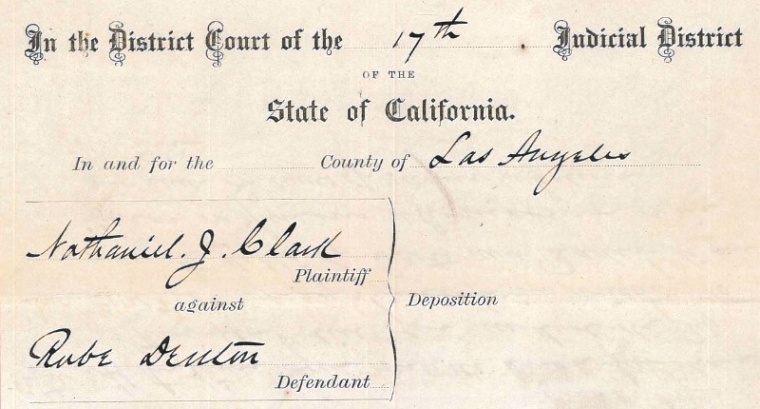 In the District Court of the 17th Judicial District
OF THE
State of California.
In and for the County of Los Angeles
Nathaniel. J. Clark
Plaintiff
against
Deposition
Robe Denton
Defendant